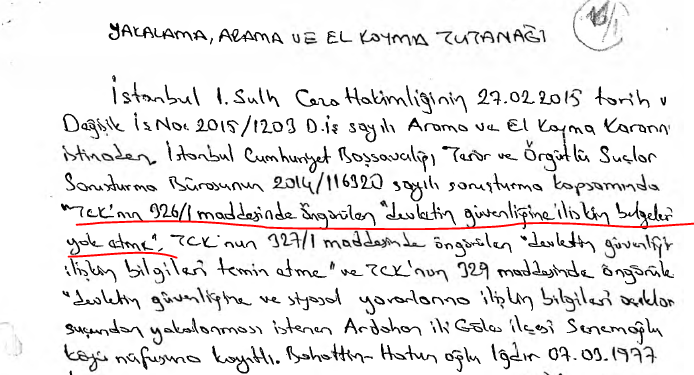 YAKALAMA, ARAMA VE EL KOYMA TUTANAĞI
İstanbul 1. Sulh Ceza Hakimliğinin 27.02.2015 tarih v
Değişik İş No: 2015/1203 D.İş sayılı Arama ve El Koyma Kararın
istinaden, İstanbul Cumhuriyet Başsavcılığı, Terör ve Örgütlü Suçlar
Soruşturma Bürosunun 2014/116920 sayılı soruşturma kapsamında
"TCK'nın 326/1 maddesinde öngörülen "devletin güvenliğine ilişkin belgeleri
yok etme", TCK'nun 327/1 maddesinde öngörülen "devletin güvenliği
ilişkin bilgileri temin etme" ve TCK'nun 329 maddesinde öngörüle
"devletin güvenliğine ve siyasal yararlarına ilişkin bilgileri açıklam
suçundan yakalanması istenen Ardahan ili Göle ilçesi Senemoğlu
köyü nüfusuna kayıtlı. Bahattin- Hatun oğlu Iğdır 07.09.1977